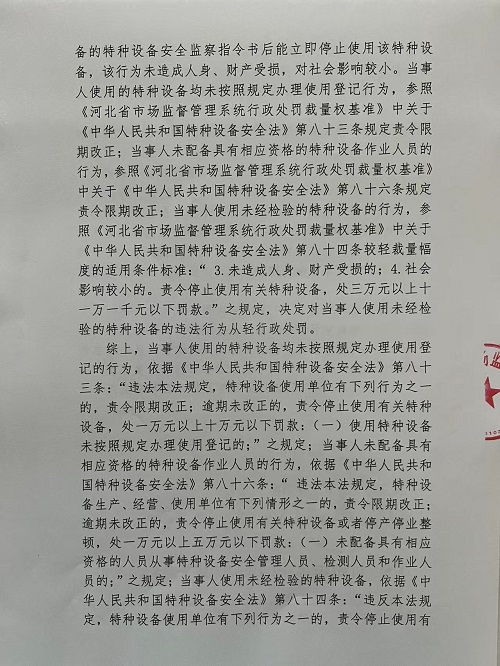 备的特种设备安全监察指令书后能立即停止使用该特种设
备，该行为未造成人身、财产受损，对社会影响较小。当事
人使用的特种设备均未按照规定办理使用登记行为，参照
《河北省市场监督管理系统行政处罚裁量权基准》中关于
《中华人民共和国特种设备安全法》第八十三条规定责令限
期改正；当事人未配备具有相应资格的特种设备作业人员的
行为，参照《河北省市场监督管理系统行政处罚裁量权基准》
中关于《中华人民共和国特种设备安全法》第八十六条规定
责令限期改正；当事人使用未经检验的特种设备的行为，参
照《河北省市场监督管理系统行政处罚裁量权基准》中关于
《中华人民共和国特种设备安全法》第八十四条较轻裁量幅
度的适用条件标准：“ 3.未造成人身、财产受损的；4.社会
影响较小的。责令停止使用有关特种设备，处三万元以上十
一万一千元以下罚款。”之规定，决定对当事人使用未经检
验的特种设备的违法行为从轻行政处罚。
综上，当事人使用的特种设备均未按照规定办理使用登
记的行为，依据《中华人民共和国特种设备安全法》第八十
三条：“违法本法规定，特种设备使用单位有下列行为之一
的，责令限期改正；逾期未改正的，责令停止使用有关特种
设备，处一万元以上十万元以下罚款：（一）使用特种设备
未按照规定办理使用登记的；”之规定；当事人未配备具有
相应资格的特种设备作业人员的行为，依据《中华人民共和
国特种设备安全法》第八十六条：“ 违法本法规定，特种设
备生产、经营、使用单位有下列情形之一的，责令限期改正；
逾期未改正的，责令停止使用有关特种设备或者停产停业整
顿，处一万元以上五万元以下罚款：（一）未配备具有相应
资格的人员从事特种设备安全管理人员、检测人员和作业人
员的；”之规定；当事人使用未经检验的特种设备，依据《中
华人民共和国特种设备安全法》第八十四条：“违反本法规
定，特种设备使用单位有下列行为之一的，责令停止使用有